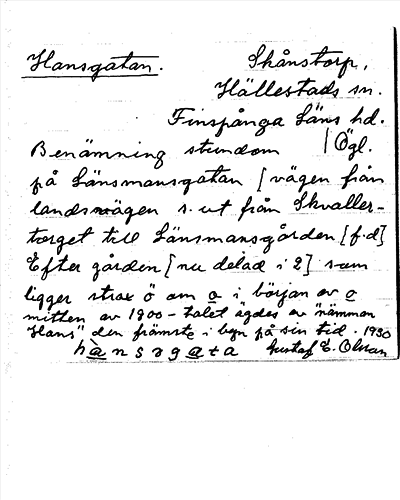 Hansgatan. Skånstorp,
Hällestads sn.
Finspånga Läns hd.
Benämning stundom / Ögl.
på Länsmansgatan [vägen från
landsvägen s. ut från Skvaller-
torget till Länsmansgården [f.d]
Efter gården [nu delad i 2] som
ligger strax ö om o i början av o
mitten av 1900-talet ägdes av "nämman
Hans", den främste i byn på sin tid. 1930
hànsɷgata Gustaf E. Olsson